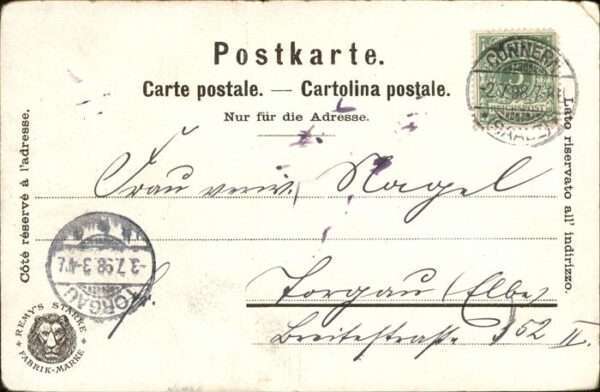 Postkarte.
Carte postale. — Cartolina postale.
Nur für die Adresse.
Côté réservé à l'adresse.
Lato riservato all' indirizzo.
CÖNNERN
2.7.98.7-8
(SAALE)
Frau verw. Nagel
TORGAU
-3.7.98.3-4N.
Torgau (Elbe)
Breitestraße 52 II.
REMY'S STÄRKE
FABRIK-MARKE